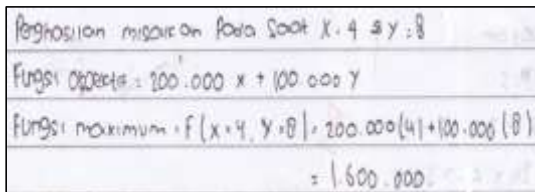 Penghasilan misalkan Pada Saat X = 4 & y = 8
Fungsi Objects = 200.000 x + 100.000 y
Fungsi maximum = f(x=4, y=8) = 200.000(4)+100.000(8)
= 1.600.000.